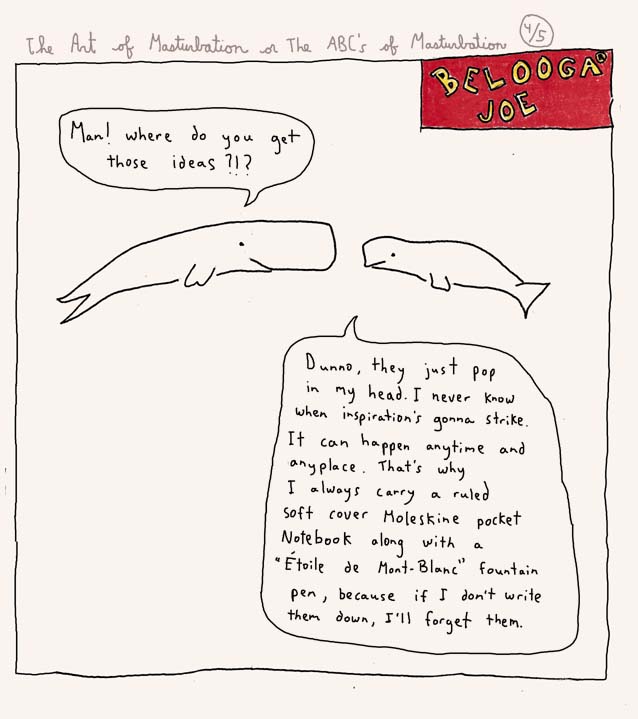 The Art of Masturbation or The ABC's of Masturbation 4/5
BELOOGA®
JOE
Man! where do you get
those ideas ?!?
Dunno, they just pop
in my head. I never know
when inspiration's gonna strike.
It can happen anytime and
anyplace. That's why
I always carry a ruled
soft cover Moleskine pocket
Notebook along with a
"Étoile de Mont-Blanc" fountain
pen, because if I don't write
them down, I'll forget them.